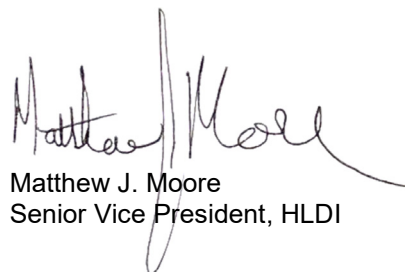 Matthew J Moore
Matthew J. Moore
Senior Vice President, HLDI